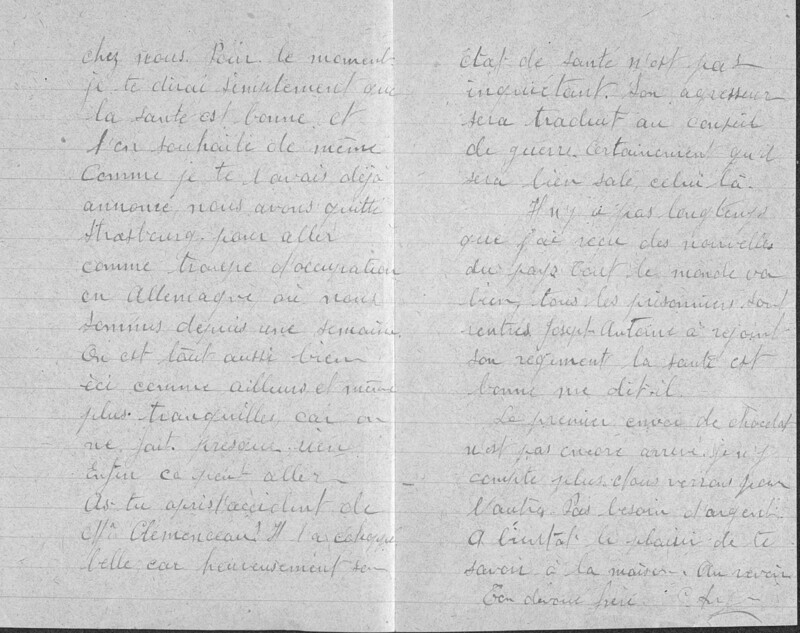 chez nous. Pour le moment
je te dirai simplement que
la santé est bonne et
t'en souhaite de même
Comme je te l'avais déjà
annoncé nous avons quitté
Strasbourg pour aller
comme troupe d'occupation
en Allemagne où nous
sommes depuis une semaine.
On est tout aussi bien
ici comme ailleurs et même
plus tranquilles car on
ne fait presque rien
Enfin ca peut aller
As-tu apris l'accident de
Mr Clémenceau? Il l'a échappé
belle car heureusement son
état de santé n'est pas
inquiétant. Son agresseur
sera traduit au conseil
de guerre. Certainement qu'il
sera bien salé celui là.
Il n'y a pas longtemps
que j'ai reçu des nouvelles
du pays tout le monde va
bien, tous les prisonniers sont
rentrés. Joseph-Antoine a rejoint
son régiment la santé est
bonne me dit-il.
Le premier envoi de chocolat
n'est pas encore arrivé je n'y
compte plus. Nous verrons pour
l'autre. Pas besoin d'argent.
A bientot le plaisir de te
savoir à la maison. Au revoir
Ton dévoué frère